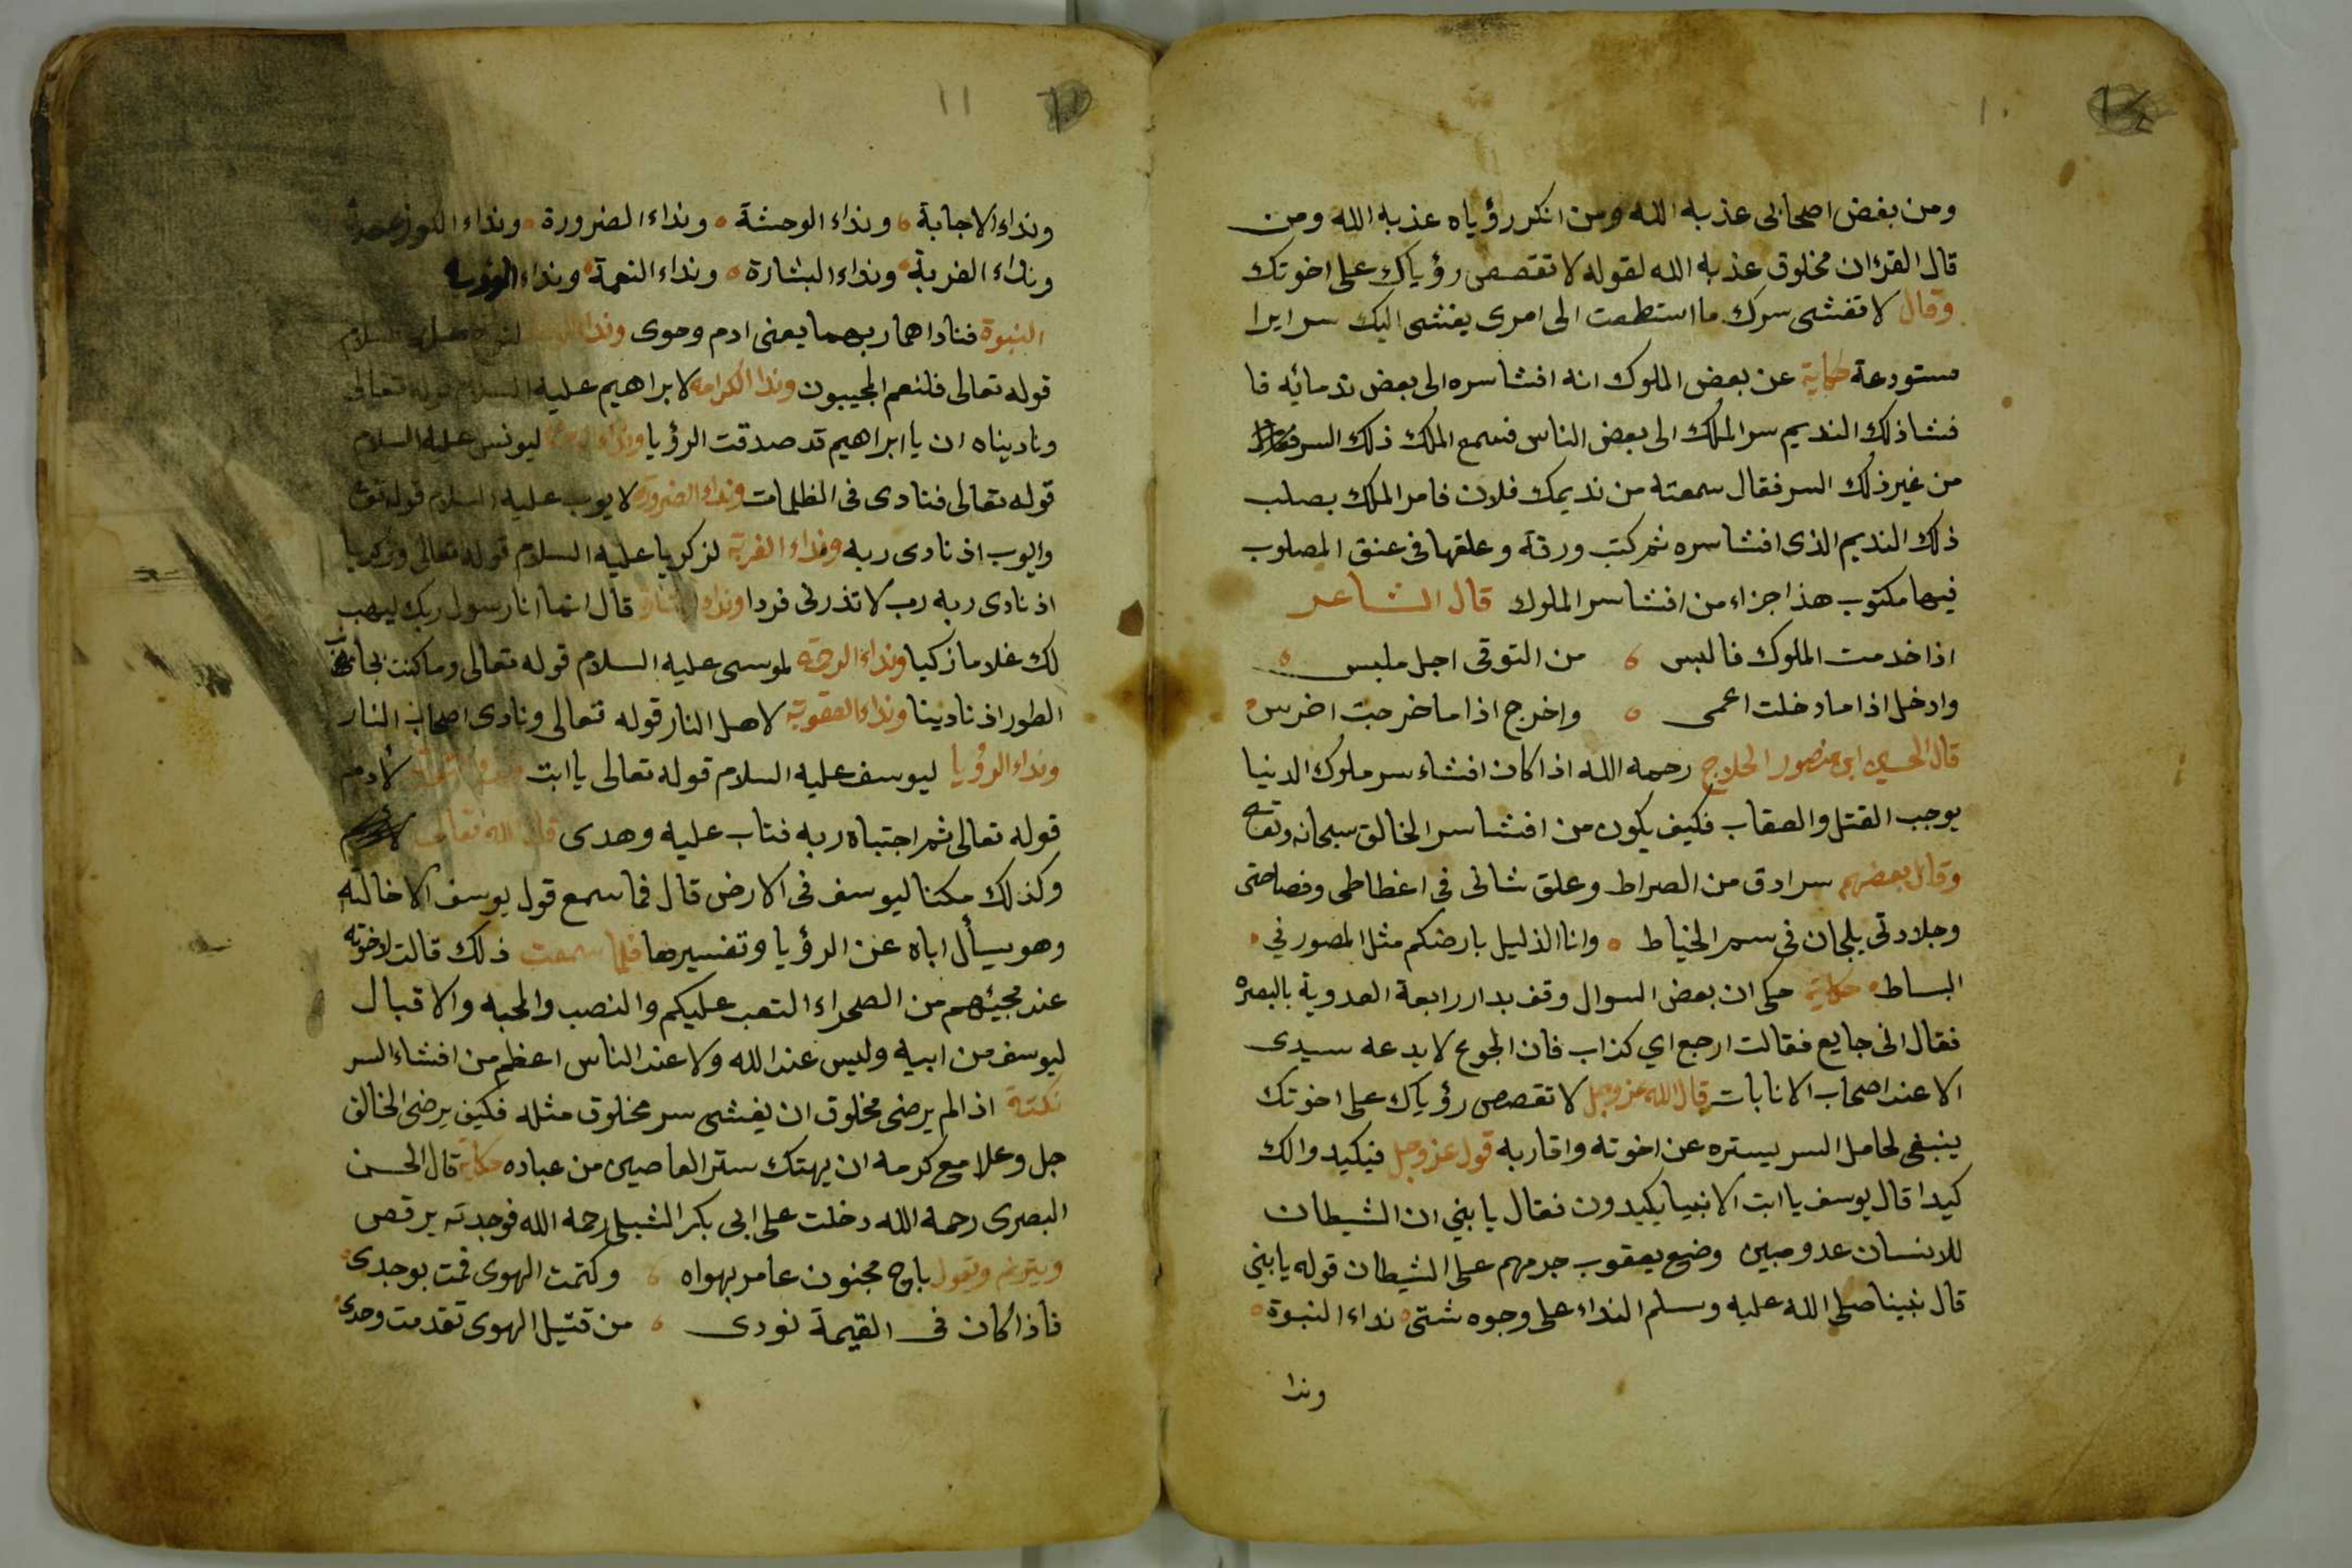 ١٠
ومن بغض اصحابى عذبه الله ومن انكر رؤياه عذبه الله ومن
قال القرءان مخلوق عذبه الله لقوله لا تقصص رؤياك على اخوتك
وقال لا تفشى سرك ما استطعت الى امرى يفشى اليك سرايرا
مستودعة حكاية عن بعض الملوك انه افشا سره الى بعض ندمائه فا
فشا ذلك النديم سر الملك الى بعض الناس فسمع الملك ذلك السر
من غير ذلك السر فقال سمعته من نديمك فلان فامر الملك بصلب
ذلك النديم الذى افشا سره ثم كتب ورقة وعلقها فى عنق المصلوب
فيها مكتوب هذا جزاء من افشا سر الملوك قال الشاعر
اذا خدمت الملوك فالبس من التوقى اجل ملبس
وادخل اذا ما دخلت اعمى واخرج اذا ما خرجت اخرس
قال الحسين ابن منصور الحلاج رحمه الله اذا كان افشاء سر ملوك الدنيا
يوجب القتل والعقاب فكيف يكون من افشا سر الخالق سبحانه وتعالى
وقال بعضهم سرادق من الصراط وعلق شانى فى اغطاطى وفصاحتى
وجلادتى يلجان فى سم الخياط وانا الذليل بارضكم مثل المصور في
البساط حكاية حكى ان بعض السوال وقف بدار رابعة العدوية بالبصره
فقال انى جايع فقالت ارجع اي كذاب فان الجوع لا يدعه سيدى
الا عند اصحاب الانابات قال الله عز وجل لا تقصص رؤياك على اخوتك
ينبغى لحامل السر يستره عن اخوته واقاربه قوله عز وجل فيكيدوا لك
كيدا قال يوسف يا ابت الانبيا يكيدون فقال يا بني ان الشيطان
للانسان عدو مبين وضع يعقوب جرمهم على الشيطان قوله يا بني
قال نبينا صلى الله عليه وسلم النداء على وجوه شتى نداء النبوة
وندا
١١
ونداء الاجابة ونداء الوحشة ونداء الضرورة ونداء
ونداء الغربة ونداء البشارة ونداء النعمة ونداء
النبوة فناداهما ربهما يعنى ادم وحوى ونداء لنوح عليه السلام
قوله تعالى فلنعم المجيبون وندا الكرامه لابراهيم عليه السلام قوله تعالى
وناديناه ان يا ابراهيم قد صدقت الرؤيا ونداء ليونس عليه السلام
قوله تعالى فنادى فى الظلمات ونداء الضرورة لايوب عليه السلام قوله تع
وايوب اذ نادى ربه ونداء الغربة لزكريا عليه السلام قوله تعالى وزكريا
اذ نادى ربه رب لا تذرنى فردا ونداء قال انما انا رسول ربك ليهب
لك غلاما زكيا ونداء الرحمة لموسى عليه السلام قوله تعالى وما كنت بجانب
الطور اذ نادينا ونداء العقوبة لاهل النار قوله تعالى ونادى اصحاب النار
ونداء الرؤيا ليوسف عليه السلام قوله تعالى يا ابت لأدم
قوله تعالى ثم اجتباه ربه فتاب عليه وهدى قال الله تعالى
وكذلك مكنا ليوسف فى الارض قال فما سمع قول يوسف الا خالته
وهو يسأل اباه عن الرؤيا وتفسيرها فلما سمعت ذلك قالت لاخوته
عند مجيئهم من الصحراء التعب عليكم والنصب والمحبه والاقبال
ليوسف من ابيه وليس عند الله ولا عند الناس اعظم من افشاء السر
نكتة اذا لم يرضى مخلوق ان يفشى سر مخلوق مثله فكيف يرضى الخالق
جل وعلا مع كرمه ان يهتك ستر العاصين من عباده حكاية قال الحسن
البصرى رحمه الله دخلت على ابى بكر الشبلى رحمه الله فوجدته يرقص
ويترنم ويقول باح مجنون عامر بهواه وكتمت الهوى فمت بوجدى
فاذا كان فى القيمة نودى من قتيل الهوى تقدمت وحدى